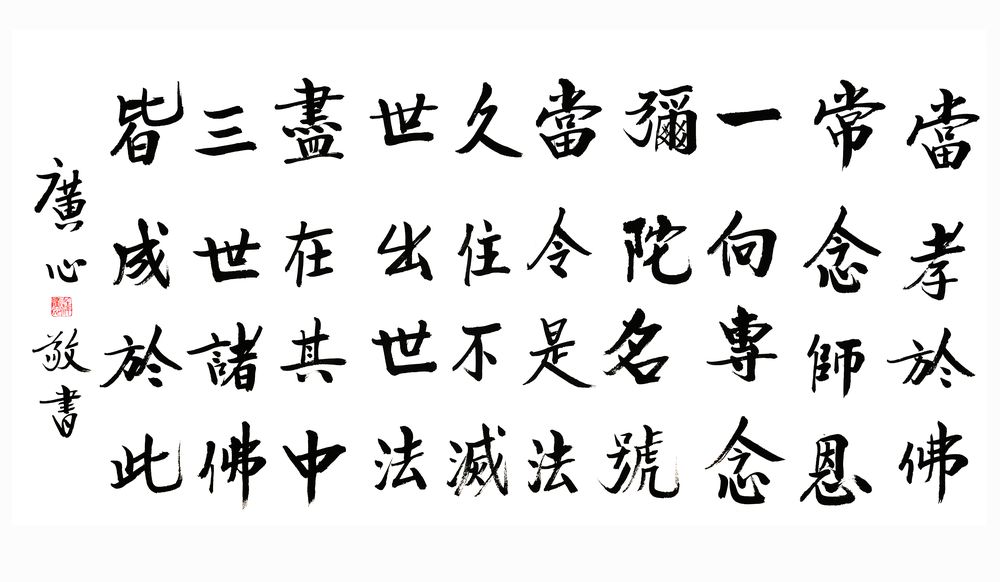 當孝於佛
常念師恩
一向專念
彌陀名號
當令是法
久住不滅
世出世法
盡在其中
三世諸佛
皆成於此
廣心敬書